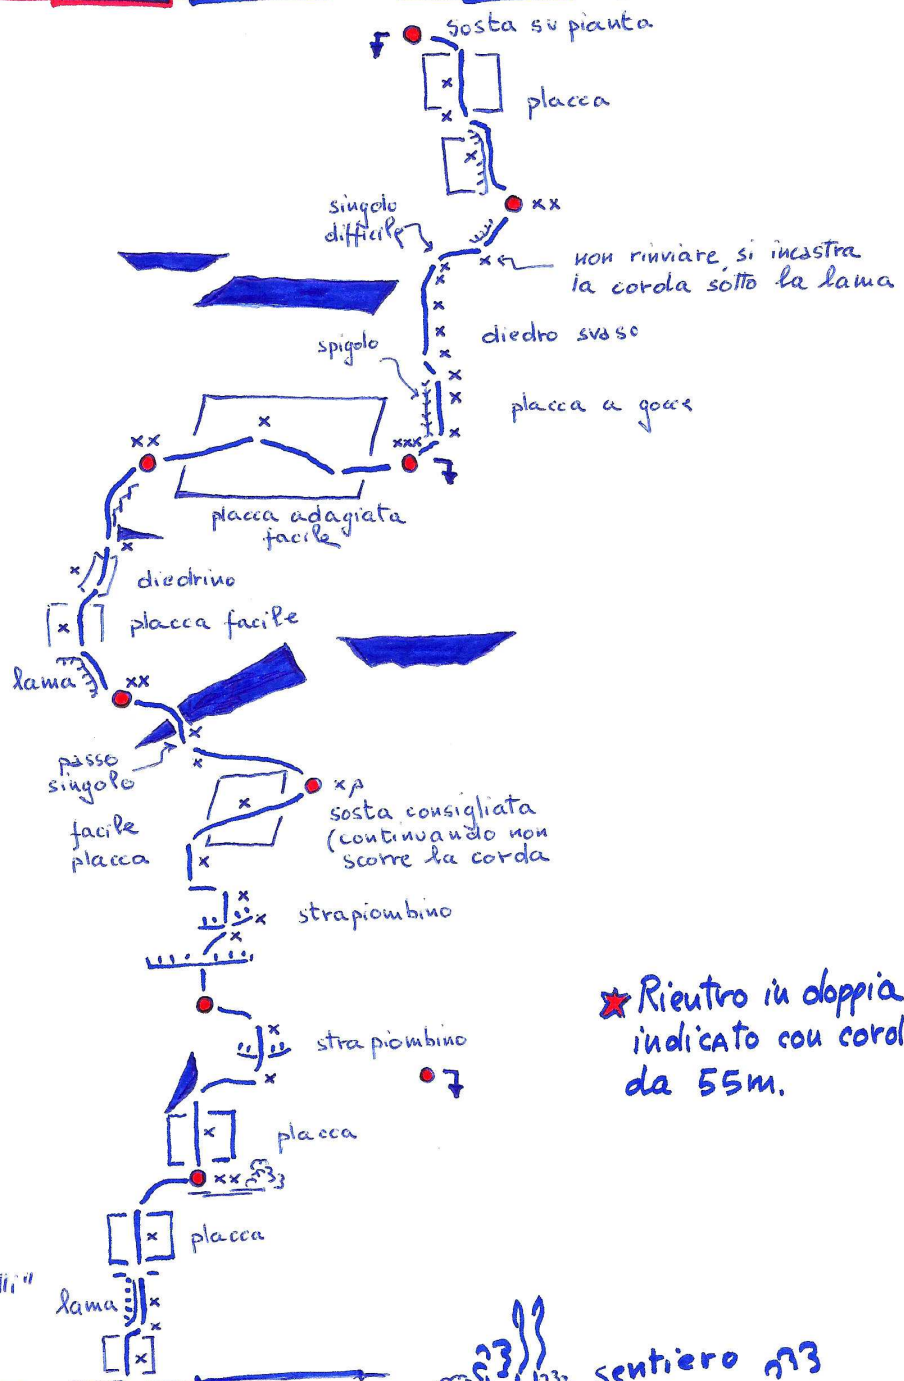 sosta su pianta
placca
singolo
difficile
non rinviare, si incastra
la corda sotto la lama
diedro svaso
spigolo
placca a gocce
placca adagiata
facile
diedrino
placca facile
lama
passo
singolo
sosta consigliata
(continuando non
scorre la corda
facile
placca
strapiombino
strapiombino
Rientro in doppia
indicato con cord
da 55m.
placca
placca
lama
sentiero